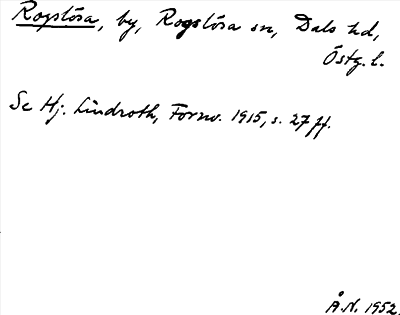 Rogslösa, by, Rogslösa sn, Dals hd,
Östg. l.
Se Hj. Lindroth, Fornv. 1915, s. 27 ff.
Å.N. 1952.